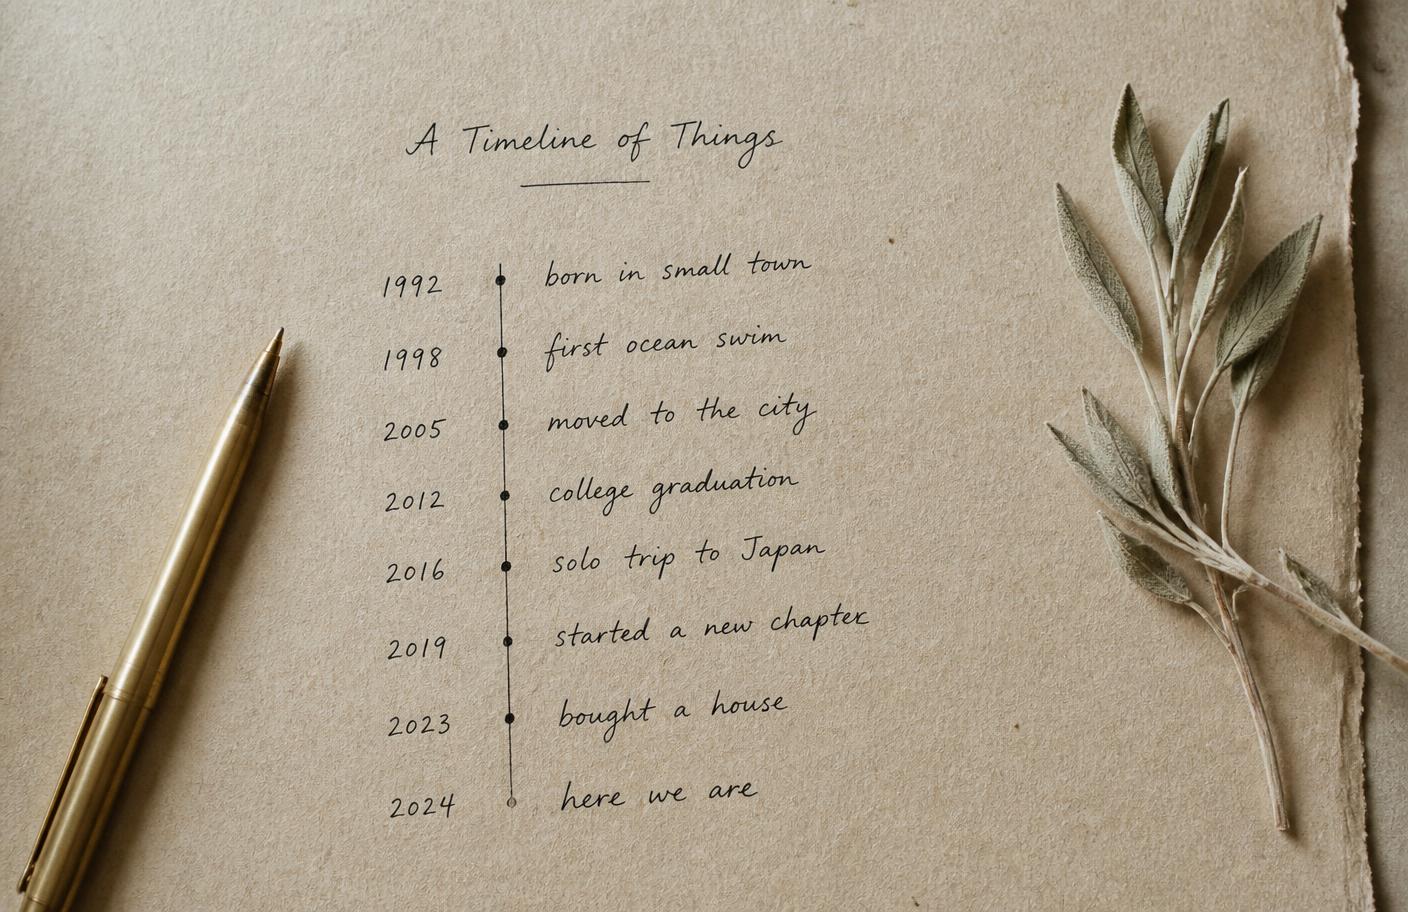 A Timeline of Things
1992 born in small town
1998 first ocean swim
2005 moved to the city
2012 college graduation
2016 solo trip to Japan
2019 started a new chapter
2023 bought a house
2024 here we are